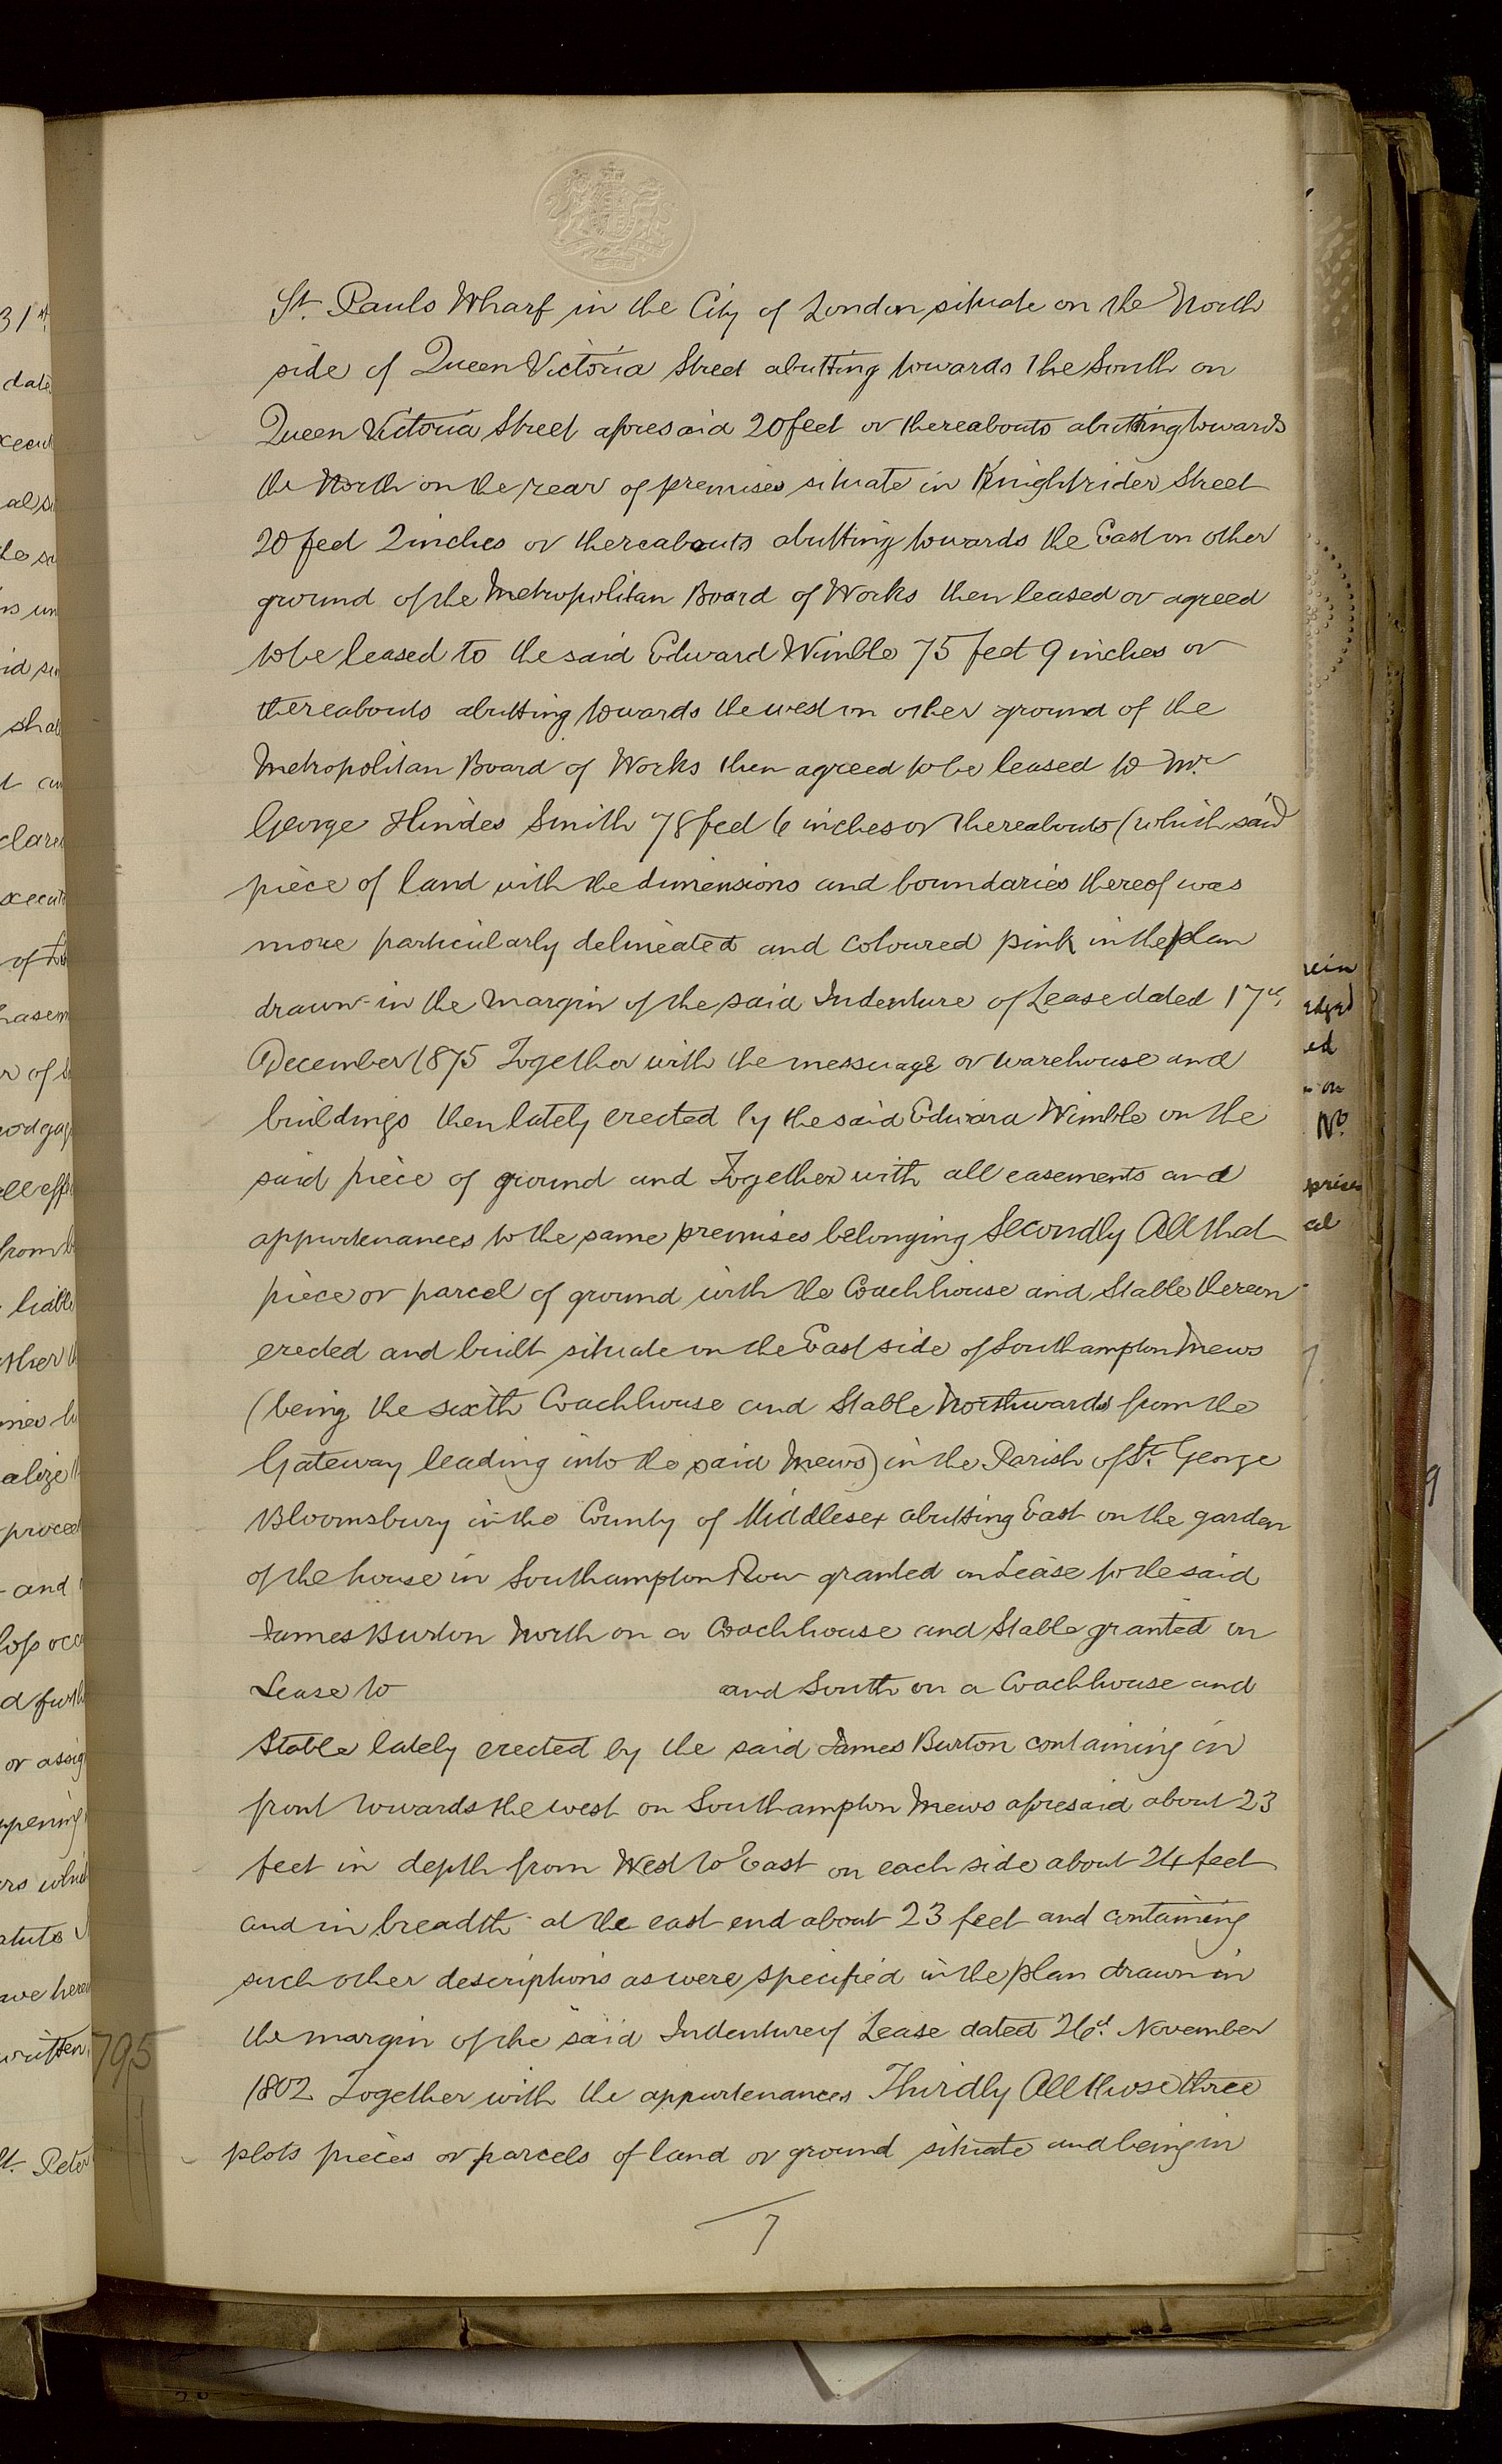 St. Pauls Wharf in the City of London situate on the North
side of Queen Victoria Street abutting towards the South on
Queen Victoria Street aforesaid 20 feet or thereabouts abutting towards
the North on the rear of premises situate in Knightrider Street
20 feet 2 inches or thereabouts abutting towards the East on other
ground of the Metropolitan Board of Works then leased or agreed
to be leased to the said Edward Wimble 75 feet 9 inches or
thereabouts abutting towards the west on other ground of the
Metropolitan Board of Works then agreed to be leased to Mr.
George Hindes Smith 78 feet 6 inches or thereabouts (which said
piece of land with the dimensions and boundaries thereof was
more particularly delineated and coloured pink in the plan
drawn in the margin of the said Indenture of Lease dated 17th
December 1875 Together with the messuage or warehouse and
buildings then lately erected by the said Edward Wimble on the
said piece of ground and Together with all easements and
appurtenances to the same premises belonging Secondly All that
piece or parcel of ground with the Coachhouse and Stable thereon
erected and built situate on the East side of Southampton Mews
(being the sixth Coachhouse and Stable Northwards from the
Gateway leading into the said Mews) in the Parish of St. George
Bloomsbury in the County of Middlesex abutting East on the garden
of the house in Southampton Row granted on Lease to the said
James Burton North on a Coachhouse and Stable granted on
Lease to and South on a Coachhouse and
Stable lately erected by the said James Burton containing in
front towards the west on Southampton Mews aforesaid about 23
feet in depth from West to East on each side about 24 feet
and in breadth at the east end about 23 feet and containing
such other descriptions as were specified in the plan drawn in
the margin of the said Indenture of Lease dated 26th November
1802 Together with the appurtenances Thirdly All those three
plots pieces or parcels of land or ground situate and being in
7
795